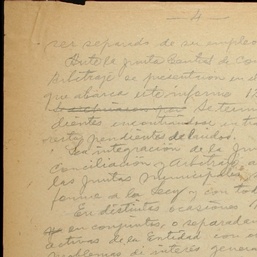 — 4 —
ser separado de su empleo
Ante la Junta Central de Con
Arbitraje se presentaron en el
que abarca este informe 12
Se determ
dientes encontrándose en tra
ces y pendientes de laudos.
La integración de la Jun
Conciliación y Arbitraje a
las Juntas Municipales
forme a la Ley y con tod
En distintas ocasiones
en conjuntos, o separada
activas de la Entidad con
problemas de interés genera